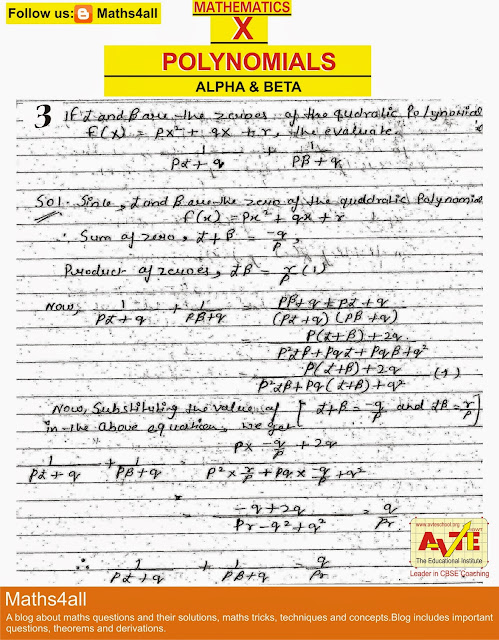 Follow us: Maths4all
MATHEMATICS
X
POLYNOMIALS
ALPHA & BETA
3 If α and β are the zeroes of the qudratic Polynomial
f(x) = px² + qx + r, the evaluate.
1/(pα+q) + 1/(pβ+q)
Sol. Since, α and β are the zero of the quddratic Polynomial
f(x) = px² + qx + r
∴ Sum of zero, α+β = -q/p,
Product of zeroes, αβ = r/p (1)
Now, 1/(pα+q) + 1/(pβ+q) = (pβ+q+pα+q)/((pα+q)(pβ+q))
= (p(α+β)+2q)/(p²αβ+pqα+pqβ+q²)
= (p(α+β)+2q)/(p²αβ+pq(α+β)+q²) (1)
Now, Substituting the value of [α+β = -q/p and αβ = r/p]
in the above equation, we get
1/(pα+q) + 1/(pβ+q) = (p× -q/p +2q)/(p²× r/p + pq× -q/p +q²)
= (-q+2q)/(pr-q²+q²) = q/pr
∴ 1/(pα+q) + 1/(pβ+q) = q/pr
www.avteschool.org
AVTE
The Educational Institute
Leader in CBSE Coaching
Maths4all
A blog about maths questions and their solutions, maths tricks, techniques and concepts.Blog includes important
questions, theorems and derivations.